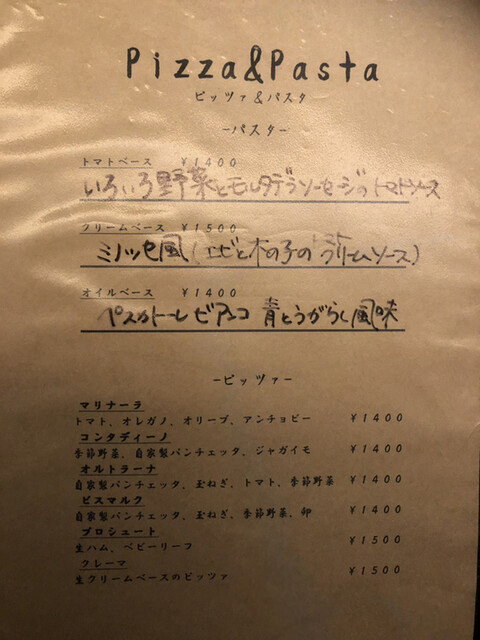 Pizza&Pasta
ピッツァ&パスタ
-パスタ-
トマトベース ¥1400
いろいろ野菜とモルタデラソーセージのトマトソース
クリームベース ¥1500
ミノッセ風(エビと木の子のトマトクリームソース)
オイルベース ¥1400
ペスカトーレ ビアンコ 青とうがらし風味
-ピッツァ-
マリナーラ
トマト、オレガノ、オリーブ、アンチョビー ¥1400
コンタディーノ
季節野菜、自家製パンチェッタ、ジャガイモ ¥1400
オルトラーナ
自家製パンチェッタ、玉ねぎ、トマト、季節野菜 ¥1400
ビスマルク
自家製パンチェッタ、玉ねぎ、季節野菜、卵 ¥1400
プロシュート
生ハム、ベビーリーフ ¥1500
クレーマ
生クリームベースのピッツァ ¥1500